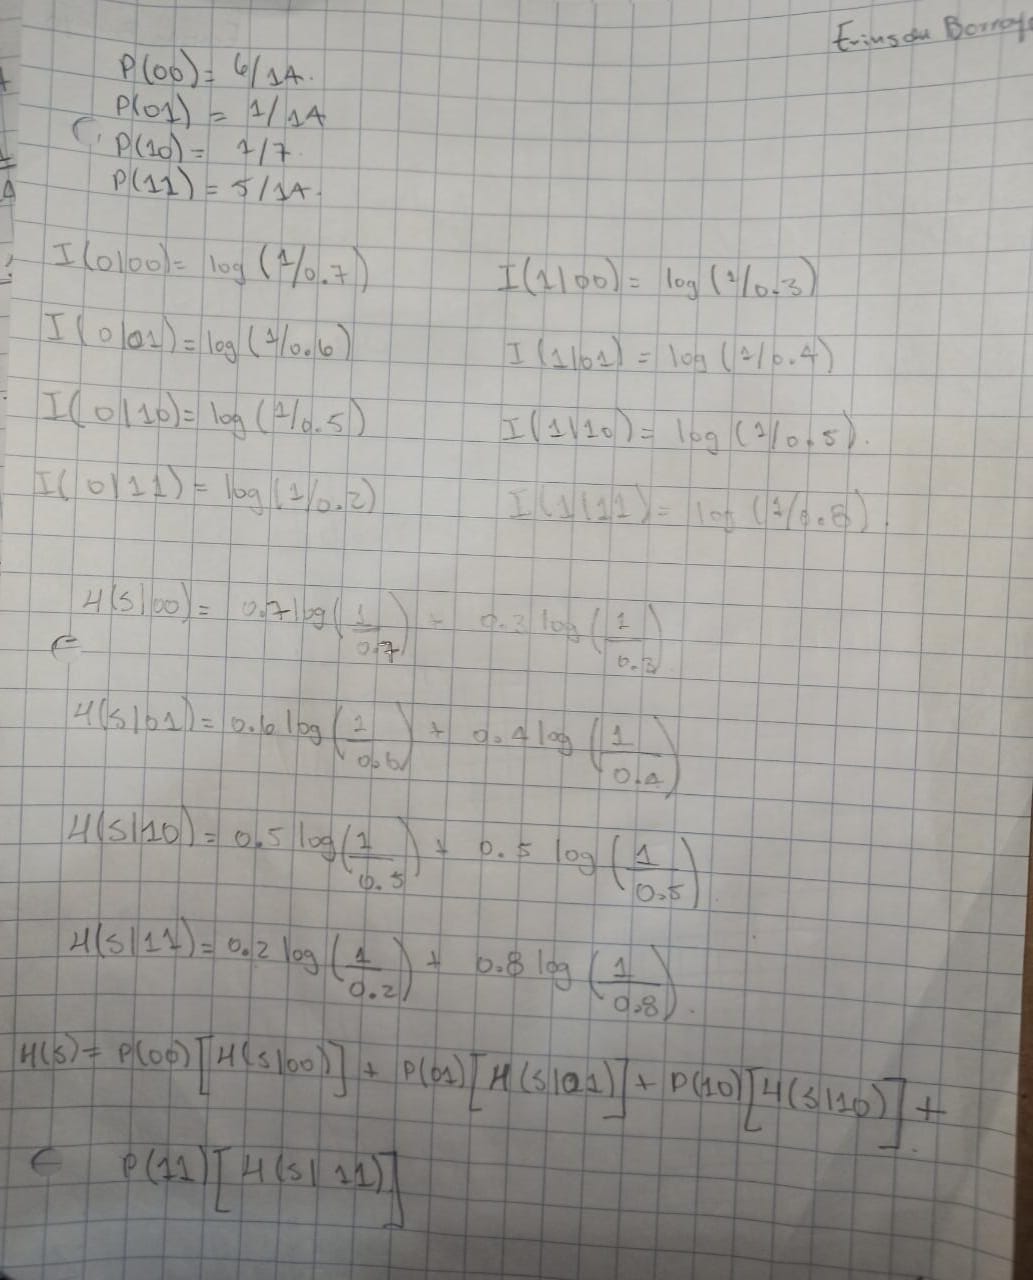 P(00) = 6/14.
P(01) = 1/14
P(10) = 1/7.
P(11) = 5/14.
I(0|00) = log(1/0.7) I(1|00) = log(1/0.3)
I(0|01) = log(1/0.6) I(1|01) = log(1/0.4)
I(0|10) = log(1/0.5) I(1|10) = log(1/0.5).
I(0|11) = log(1/0.2) I(1|11) = log(1/0.8).
H(S|00) = 0.7 log(1/0.7) - 0.3 log(1/0.3)
H(S|01) = 0.6 log(1/0.6) + 0.4 log(1/0.4)
H(S|10) = 0.5 log(1/0.5) + 0.5 log(1/0.5).
H(S|11) = 0.2 log(1/0.2) + 0.8 log(1/0.8).
H(S) = P(00)[H(S|00)] + P(01)[H(S|01)] + P(10)[H(S|10)] +
P(11)[H(S|11)]